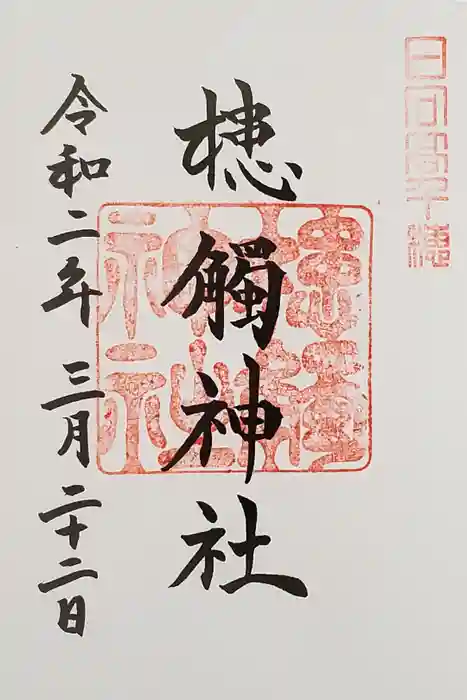 日向高千穂
槵觸神社
令和二年三月二十二日